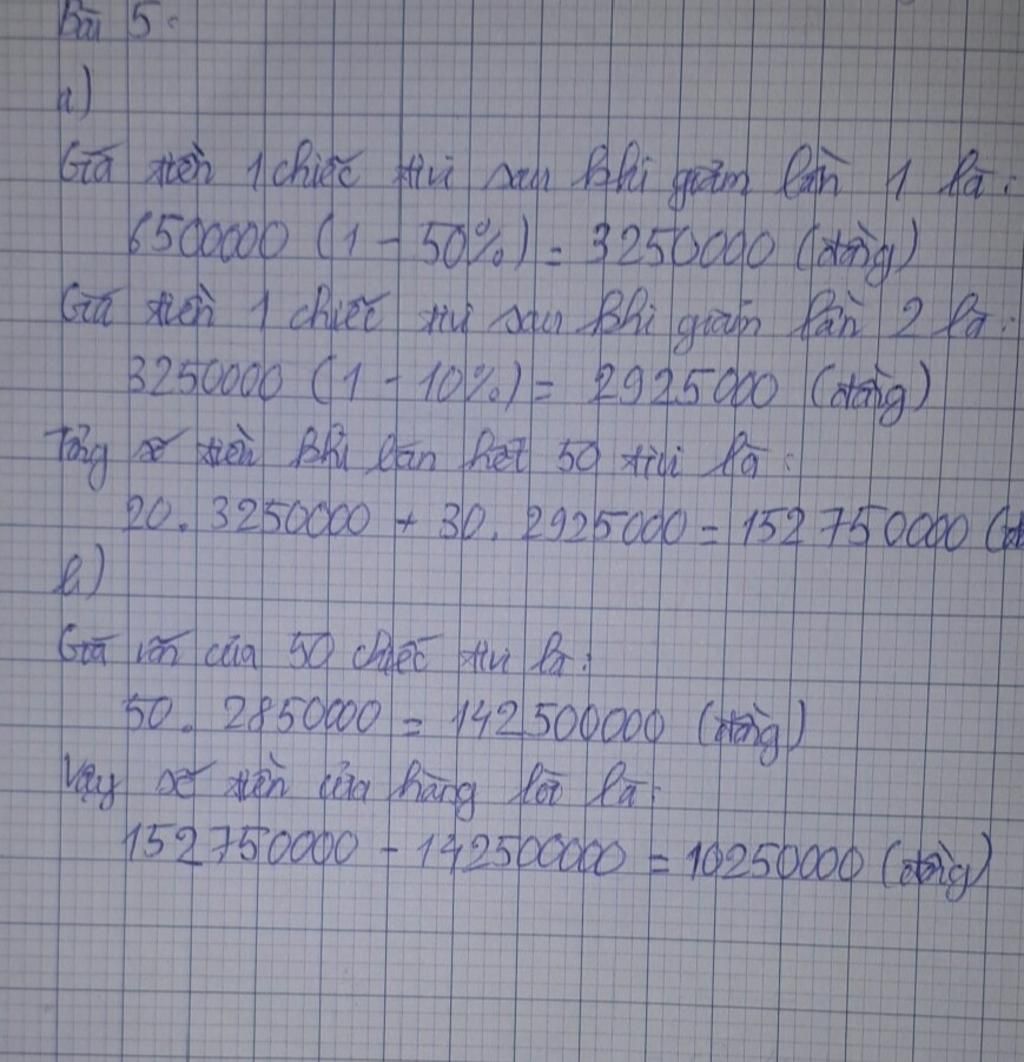 Bài 5:
a)
Giá tiền 1 chiếc tivi sau khi giảm lần 1 là:
6500000 (1 - 50%) = 3250000 (đồng)
Giá tiền 1 chiếc tivi sau khi giảm lần 2 là:
3250000 (1 - 10%) = 2925000 (đồng)
Tổng số tiền khi bán hết 50 tivi là:
20. 3250000 + 30. 2925000 = 152750000 (đ
b)
Giá vốn của 50 chiếc tivi là:
50. 2850000 = 142500000 (đồng)
Vậy số tiền cửa hàng lời là:
152750000 - 142500000 = 10250000 (đồng)